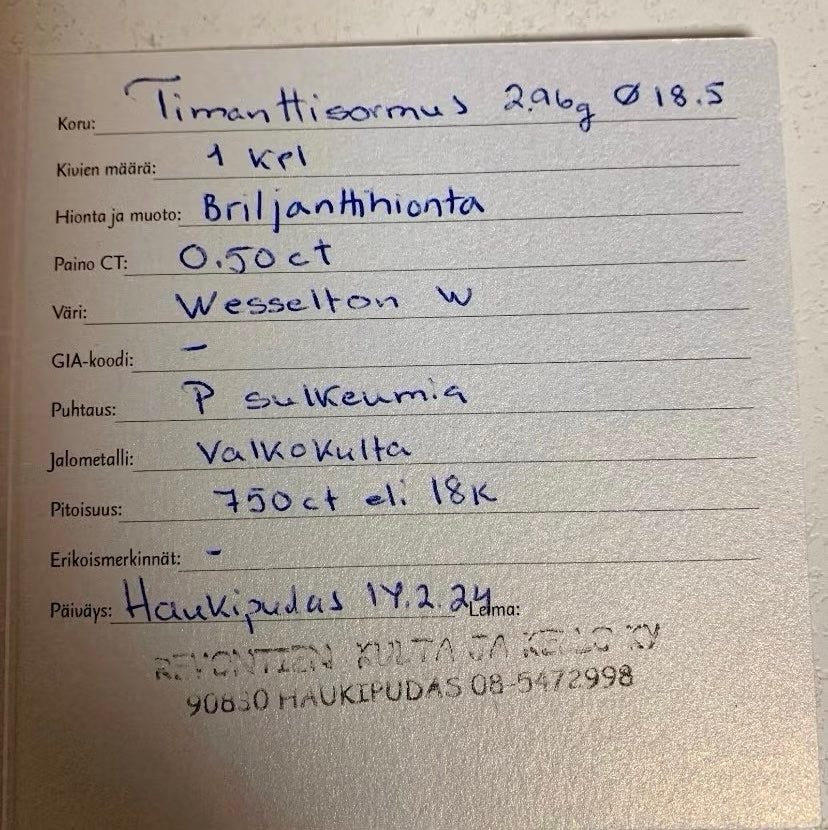 Koru: Timanttisormus 2.96g Ø 18.5
Kivien määrä: 1 kpl
Hionta ja muoto: Briljanttihionta
Paino CT: 0.50 ct
Väri: Wesselton W
GIA-koodi: -
Puhtaus: P sulkeumia
Jalometalli: Valkokulta
Pitoisuus: 750 ct eli 18K
Erikoismerkinnät: -
Päiväys: Haukipudas 14.2.24 Leima:
REVONTIEN KULTA JA KELLO KY
90830 HAUKIPUDAS 08-5472998